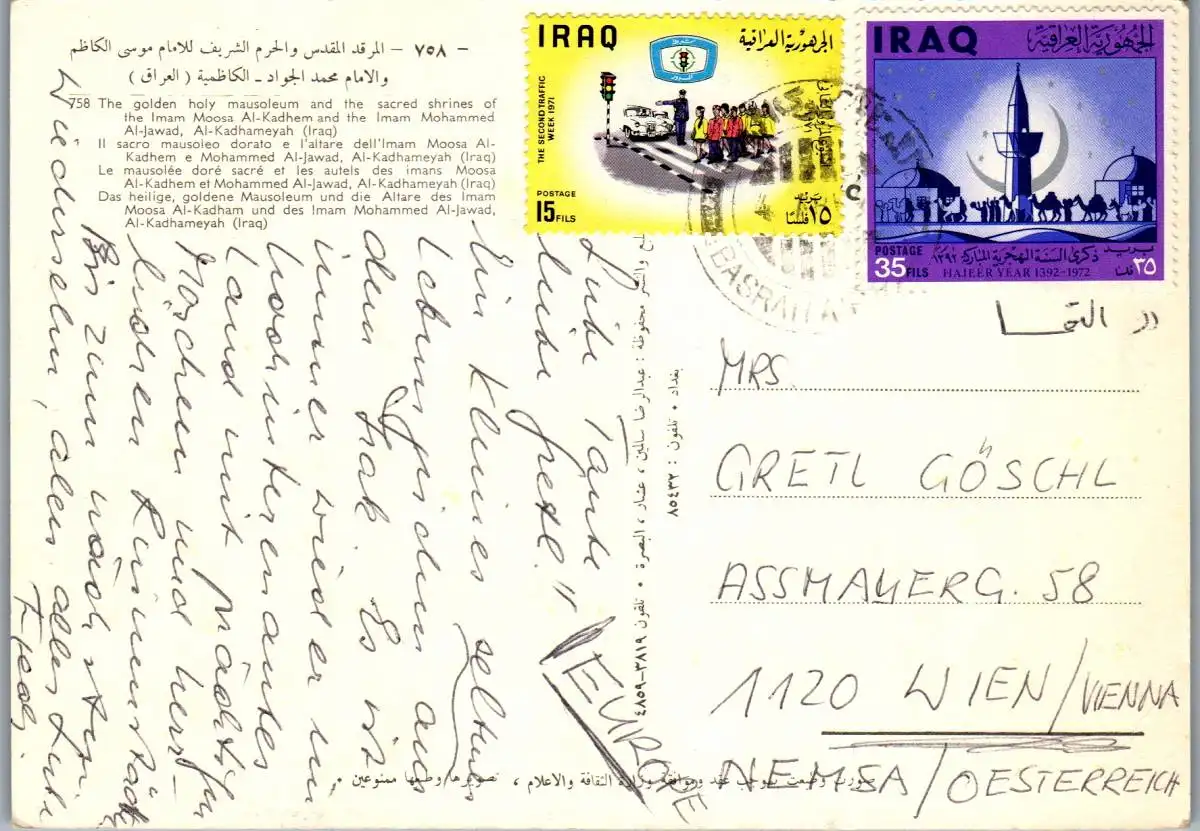 ٧٥٨ – المرقد المقدس والحرم الشريف للامام موسى الكاظم –
والامام محمد الجواد – الكاظمية ( العراق )
758 The golden holy mausoleum and the sacred shrines of
the Imam Moosa Al-Kadhem and the Imam Mohammed
Al-Jawad, Al-Kadhameyah (Iraq)
Il sacro mausoleo dorato e l'altare dell'Imam Moosa Al-
Kadhem e Mohammed Al-Jawad, Al-Kadhameyah (Iraq)
Le mausolée doré sacré et les autels des imans Moosa
Al-Kadhem et Mohammed Al-Jawad, Al-Kadhameyah (Iraq)
Das heilige, goldene Mausoleum und die Altare des Imam
Moosa Al-Kadham und des Imam Mohammed Al-Jawad,
Al-Kadhameyah (Iraq)
IRAQ
الجمهورية العراقية
THE SECOND TRAFFIC
WEEK 1971
POSTAGE
15 FILS
بريد
١٥ فلساً
IRAQ
الجمهورية العراقية
POSTAGE
35 FILS
ذكرى السنة الهجرية المباركة ١٣٩٢
HAJEER YEAR 1392-1972
بريد
٣٥ فلسا
BASRAH
Liebe Tante
liebe Gretl!!
Ein kleines seltenes
Lebenszeichen aus
dem Irak. Es ist
immer wieder ein
hochinteressantes
Land mit
und
Bis zum
Wiedersehn, alles alles Liebe
Fredi
والنشر محفوظة : عبدالرضا سالمين ، عشار ، البصرة • تلفون ٣٨١٩–٤٨٥٩
بغداد • تلفون : ٨٥٤٣٢
النمسا
MRS.
GRETL GÖSCHL
ASSMAYERG. 58
1120 WIEN/VIENNA
NEMSA/OESTERREICH
EUROPE
صورت وطبعت بموجب عقد وموافقة وزارة الثقافة والاعلام ، تصويرها وطبعها ممنوعين •